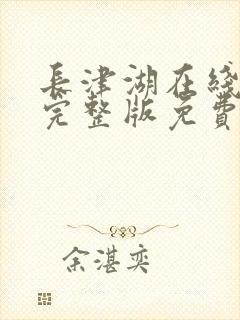 長津湖在綫
完整版免費
余湛奕